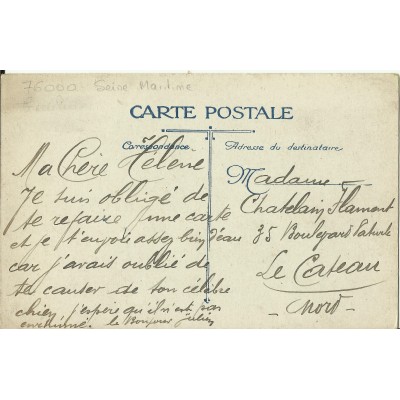 76000 Seine Maritime
CARTE POSTALE
Correspondance
Adresse du destinataire
Ma Chère Hélène
Je suis obligé de
te refaire une carte
et je t'envois assez bien
car j'avais oublié de
te causer de ton célèbre
chien, j'espère qu'il n'est pas
enrhumé. le Bonjour Julien
Madame
Chatelain Flament
35 Boulevard
Le Cateau
- Nord -